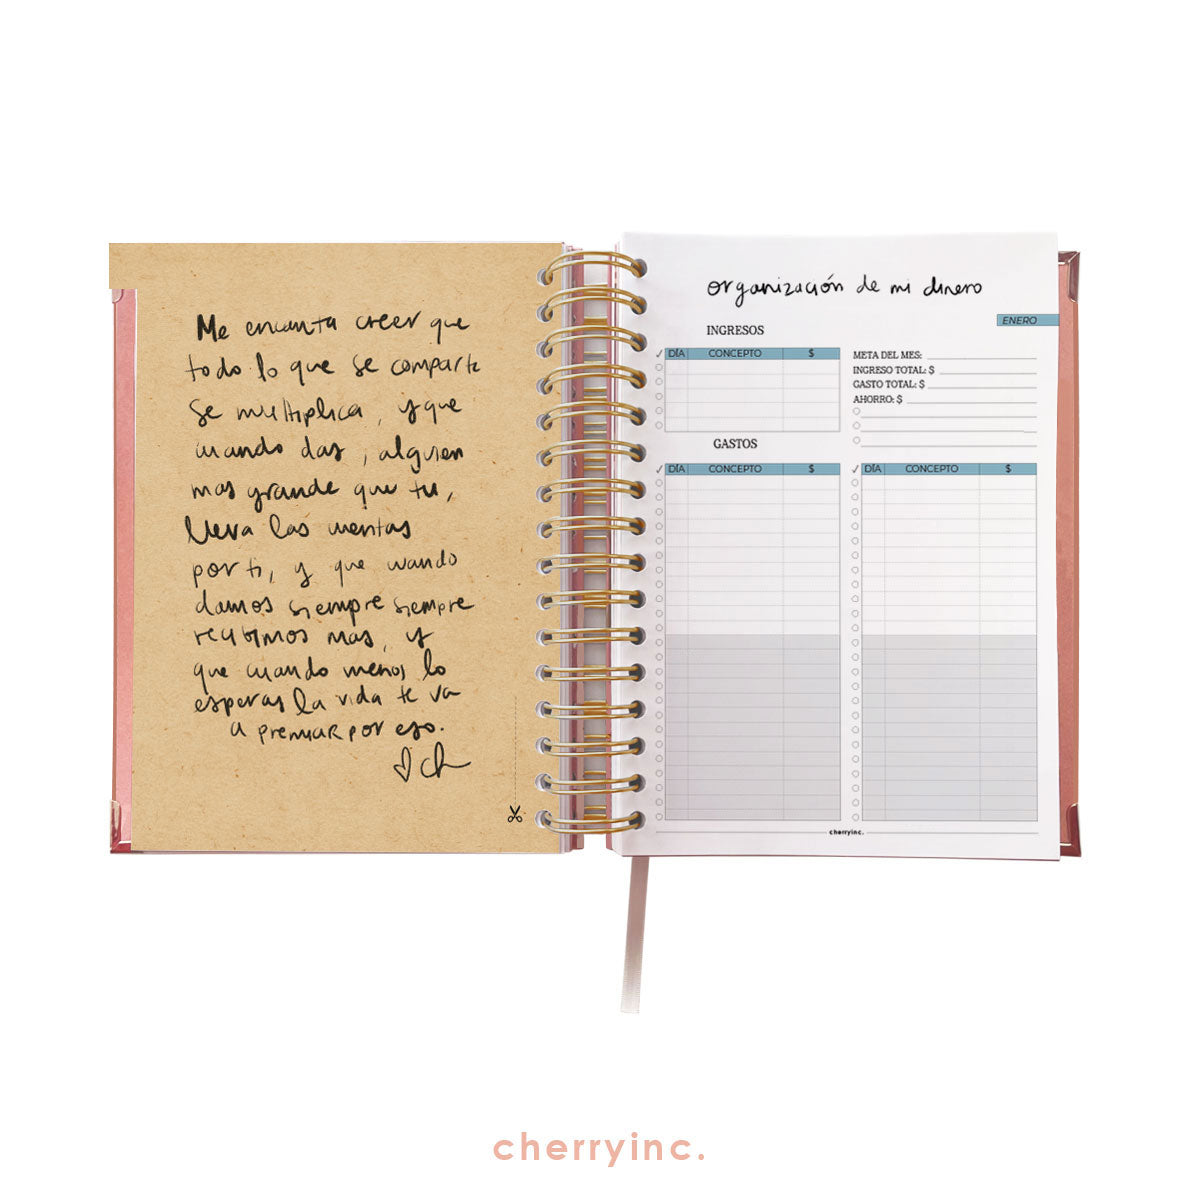 Me encanta creer que
todo lo que se comparte
se multiplica, y que
cuando das, alguien
mas grande que tu,
lleva las cuentas
por ti, y que cuando
damos siempre siempre
recibimos mas, y
que cuando menos lo
esperas la vida te va
a premiar por eso.
ch
organización de mi dinero
ENERO
INGRESOS
✓ DÍA CONCEPTO $
META DEL MES:
INGRESO TOTAL: $
GASTO TOTAL: $
AHORRO: $
GASTOS
✓ DÍA CONCEPTO $
✓ DÍA CONCEPTO $
cherryinc.
cherryinc.